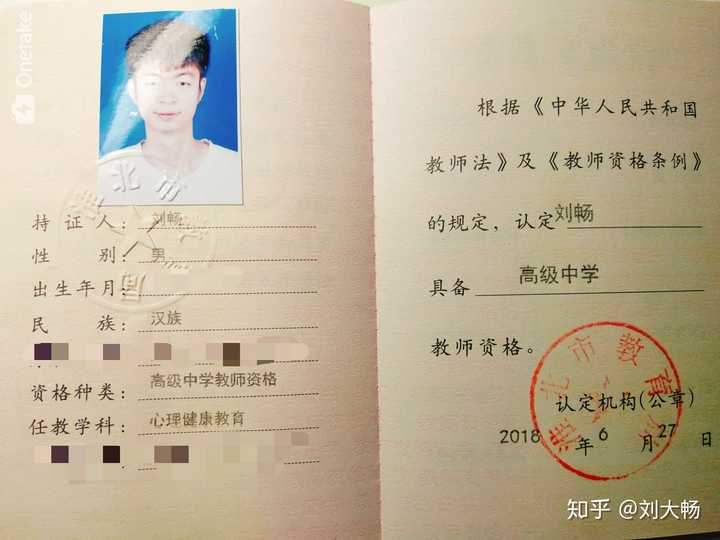 Onetake
持证人：刘畅
性别：男
出生年月：
民族：汉族
资格种类：高级中学教师资格
任教学科：心理健康教育
根据《中华人民共和国
教师法》及《教师资格条例》
的规定，认定刘畅
具备高级中学
教师资格。
淮北市教育局
认定机构(公章)
2018年6月27日
知乎 @刘大畅